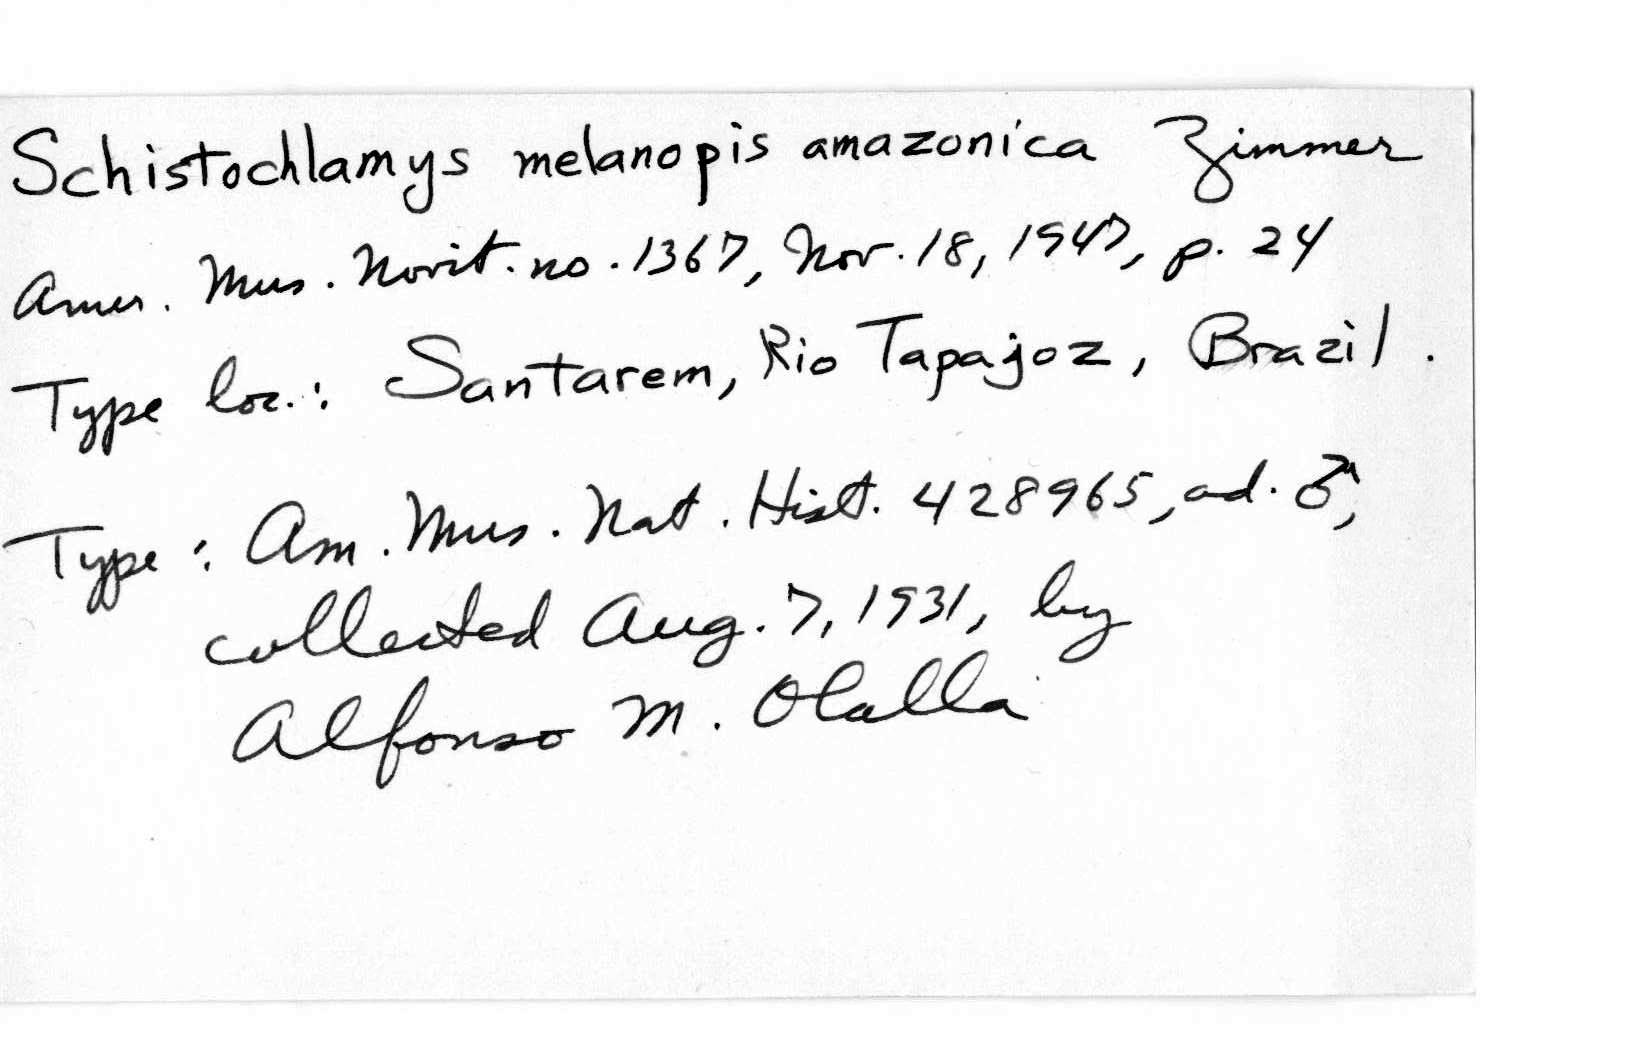 Schistochlamys melanopis amazonica Zimmer
Amer. Mus. Novit. no. 1367, Nov. 18, 1947, p. 24
Type loc.: Santarem, Rio Tapajoz, Brazil.
Type: Am. Mus. Nat. Hist. 428965, ad. ♂,
collected Aug. 7, 1931, by
Alfonso M. Olalla